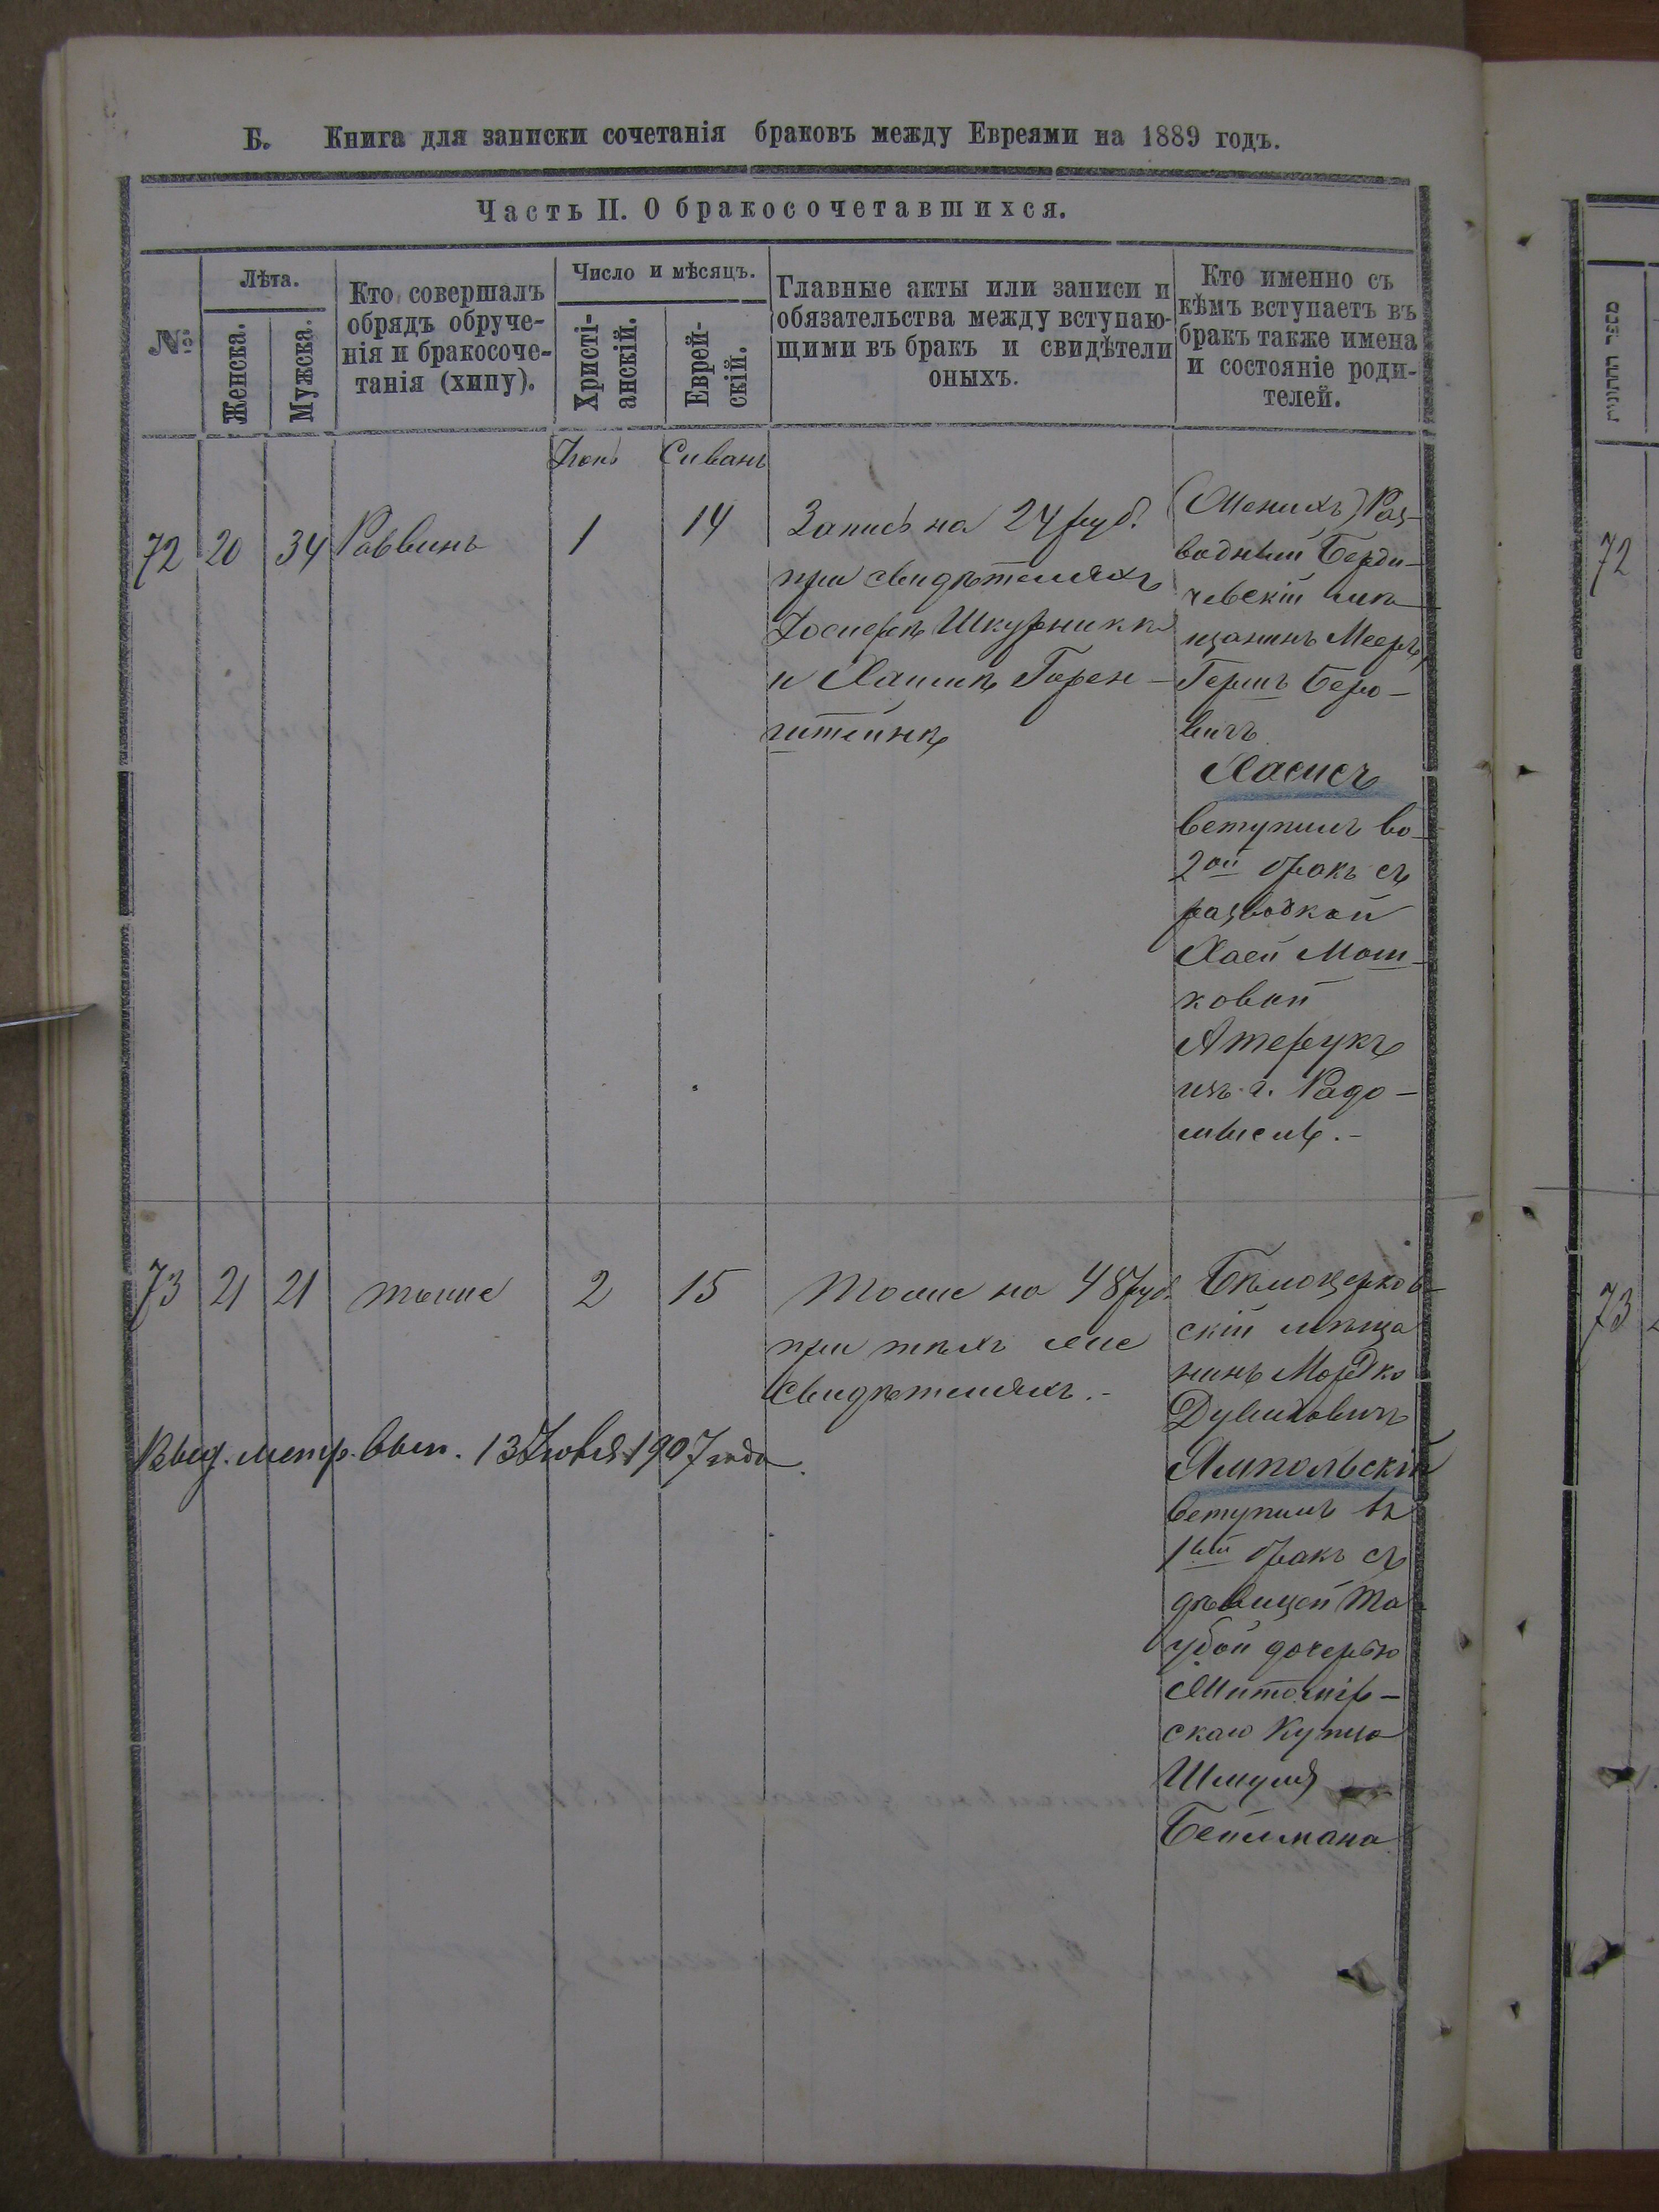 Б. Книга для записки сочетанія браковъ между Евреями на 1889 годъ.
Часть II. О бракосочетавшихся.
№
Лѣта.
Женска.
Мужска.
Кто совершалъ
обрядъ обруче-
нія и бракосоче-
танія (хипу).
Число и мѣсяцъ.
Христі-
анскій.
Еврей-
скій.
Главные акты или записи и
обязательства между вступаю-
щими въ бракъ и свидѣтели
оныхъ.
Кто именно съ
кѣмъ вступаетъ въ
бракъ также имена
и состояніе роди-
телей.
Іюнь Сивань
72 20 34 Раввинъ 1 14
Запись на 24 руб.
при свидѣтеляхъ
Іосифѣ Шкурникѣ
и Хаимѣ Горен-
штейнѣ
(Женихъ) Раз-
водный Берди-
чевскій мѣ-
щанинъ Мееръ
Гершъ Беро-
вичъ
Хасисъ
вступилъ во
2ой бракъ съ
разводкой
Хаей Мош-
ковой
Атерукъ
изъ г. Радо-
мысль.-
73 21 21 тоже 2 15
Тоже на 48 руб.
при тѣхъ же
свидѣтеляхъ.-
Бѣлоцерков-
скій мѣща
нинъ Мордко
Дувидовичъ
Ямпольскій
вступилъ въ
1ый бракъ съ
дѣвицей Та
убой дочерью
Житомір-
скаго Купца
Шмуля
Бейлмана
Выд. метр. вып. 13 Іюля 1907 года.
מספר החתונות
72
73